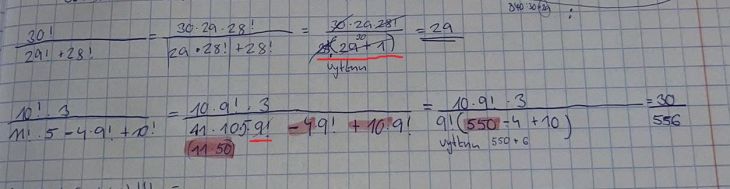 30! / 29! + 28! = 30·29·28! / 29·28! + 28! = 30·29·28! / 28!(29+1) = 29
30
vytknu
10!·3 / 11!·5 - 4·9! + 10! = 10·9!·3 / 11·10·5·9! - 4·9! + 10·9! = 10·9!·3 / 9!(550 - 4 + 10) = 30 / 556
(11·50)
vytknu 550+6